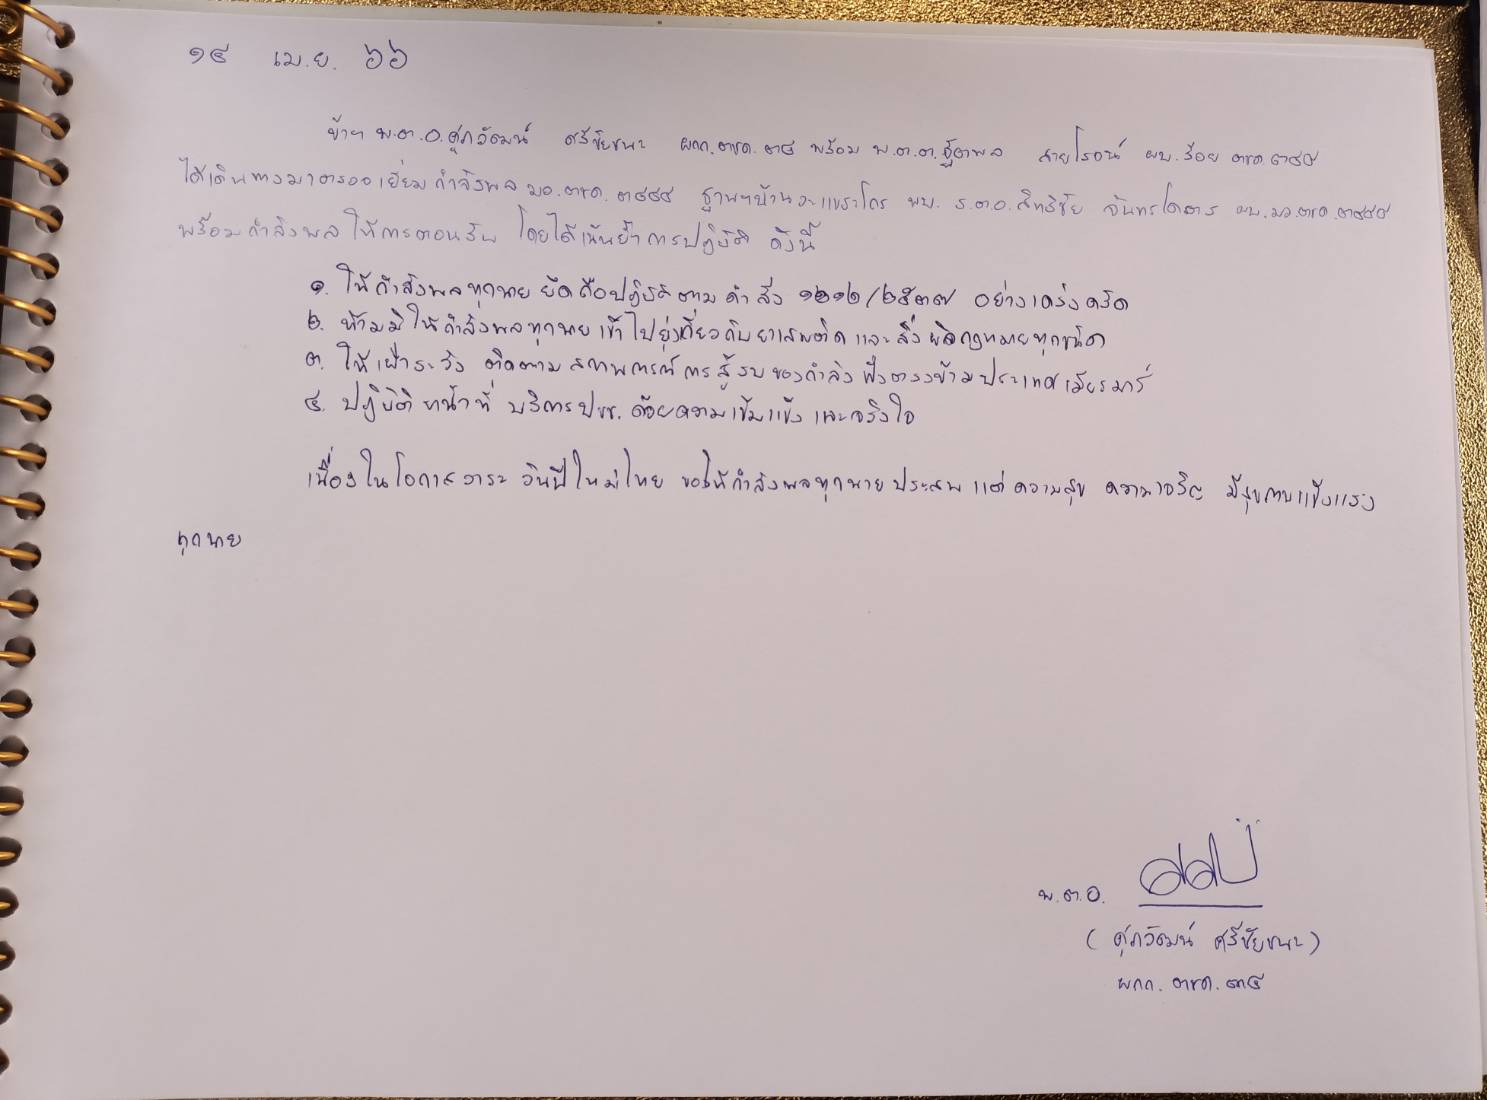 ๑๔ เม.ย. ๖๖
ข้าฯ พ.ต.อ.ศุภวัฒน์ ศรีชัยชนะ ผกก.ตชด.๓๔ พร้อม พ.ต.ต.ฐิตพล สายโรจน์ ผบ.ร้อย ตชด.๓๔๙
ได้เดินทางมาตรวจเยี่ยมกำลังพล มว.ตชด.๓๔๔๔ ฐานฯบ้าน พบ ร.ต.อ.สิทธิชัย จันทรโคตร ผบ.มว.ตชด.๓๔๔๔
พร้อมกำลังพล ให้การตอนรับ โดยได้เน้นย้ำการปฏิบัติ ดังนี้
๑. ให้กำลังพลทุกนาย ยึดถือปฏิบัติตามคำสั่ง ๑๒๑๒/๒๕๓๗ อย่างเคร่งครัด
๒. ห้ามมิให้กำลังพลทุกนายเข้าไปยุ่งเกี่ยวกับยาเสพติดและสิ่งผิดกฎหมายทุกชนิด
๓. ให้เฝ้าระวัง ติดตามสถาพการณ์การสู้รบของกำลังฝั่งตรงข้ามประเทศเมียรมาร์
๔. ปฏิบัติหน้าที่ บริการปชช. ด้วยความเข้มแข็ง และจริงใจ
เนื่องในโอกาสวาระ วันปีใหม่ไทย ขอให้กำลังพลทุกนายประสพแต่ความสุข ความเจริญ มีสุขภาพแข็งแรง
ทุกนาย
พ.ต.อ.
(ศุภวัฒน์ ศรีชัยชนะ)
ผกก.ตชด.๓๔